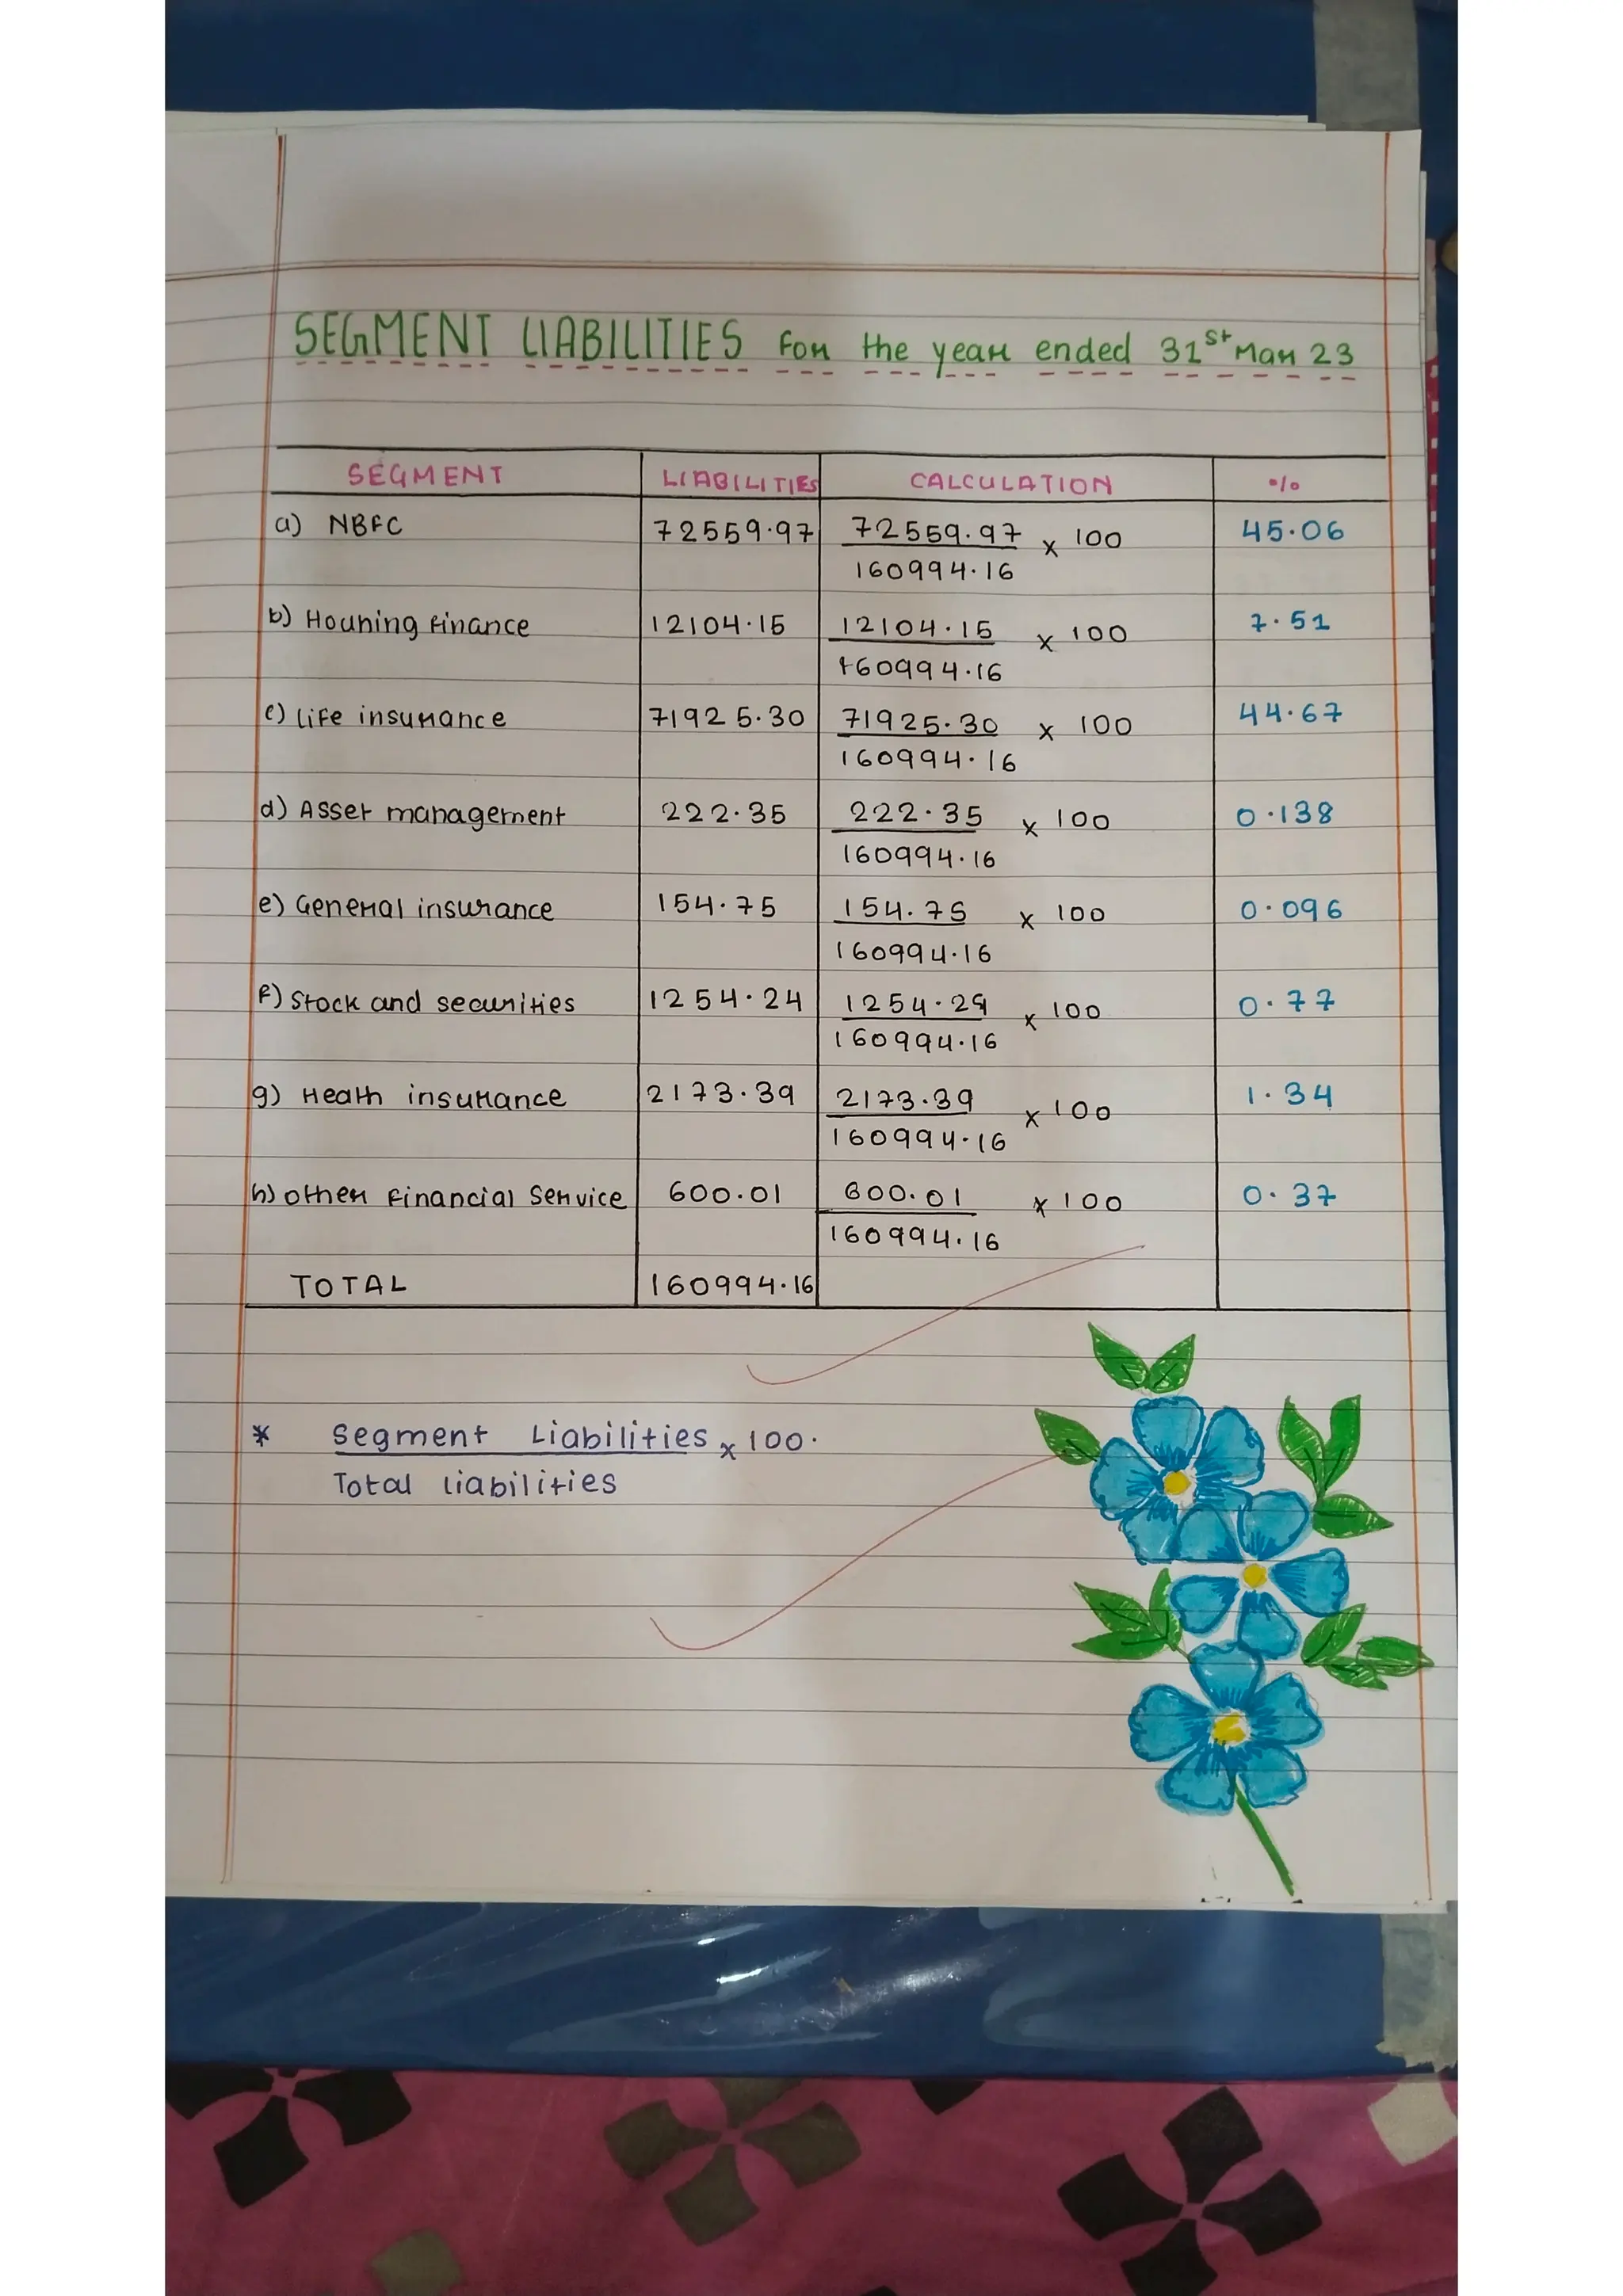 SEGMENT LIABILITIES for the year ended 31st Mar 23
SEGMENT LIABILITIES CALCULATION %
a) NBFC 72559.97 72559.97 x 100 45.06
160994.16
b) Housing finance 12104.15 12104.15 x 100 7.51
160994.16
c) Life insurance 71925.30 71925.30 x 100 44.67
160994.16
d) Asset management 222.35 222.35 x 100 0.138
160994.16
e) General insurance 154.75 154.75 x 100 0.096
160994.16
f) Stock and securities 1254.24 1254.24 x 100 0.77
160994.16
g) Heath insurance 2173.39 2173.39 x 100 1.34
160994.16
h) other financial Service 600.01 600.01 x 100 0.37
160994.16
TOTAL 160994.16
* Segment Liabilities x 100.
Total liabilities